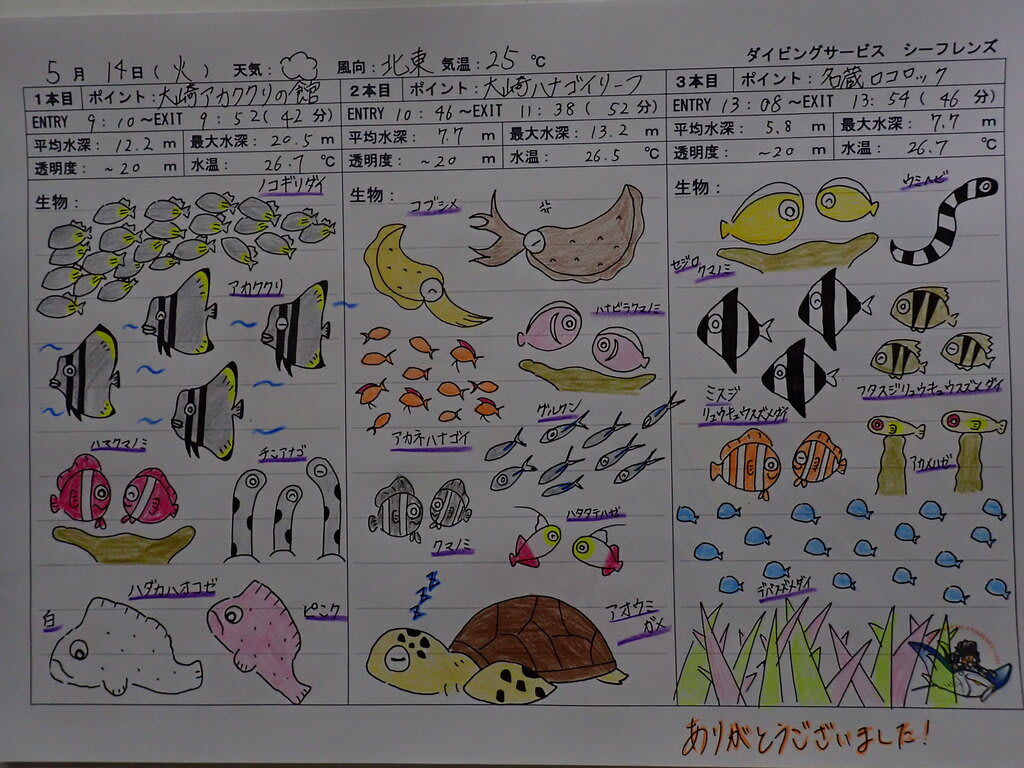 ダイビングサービス シーフレンズ
5月 14日(火) 天気: 風向:北東 気温:25℃
1本目 ポイント:大崎アカククリの館
ENTRY 9:10~EXIT 9:52(42分)
平均水深: 12.2m 最大水深: 20.5m
透明度: ~20m 水温: 26.7℃
生物:
ノコギリダイ
アカククリ
ハマクマノミ
チンアナゴ
ハダカハオコゼ
白
ピンク
2本目 ポイント:大崎ハナゴイリーフ
ENTRY 10:46~EXIT 11:38(52分)
平均水深: 7.7m 最大水深: 13.2m
透明度: ~20m 水温: 26.5℃
生物:
コブシメ
ハナビラクマノミ
アカネハナゴイ
グルクン
クマノミ
ハタタテハゼ
アオウミ
ガメ
3本目 ポイント:名蔵ロコロック
ENTRY 13:08~EXIT 13:54(46分)
平均水深: 5.8m 最大水深: 7.7m
透明度: ~20m 水温: 26.7℃
生物:
ウミヘビ
セジロ
クマノミ
ミスジ
リュウキュウスズメダイ
フタスジリュウキュウスズメダイ
アカメハゼ
デバスズメダイ
ありがとうございました!